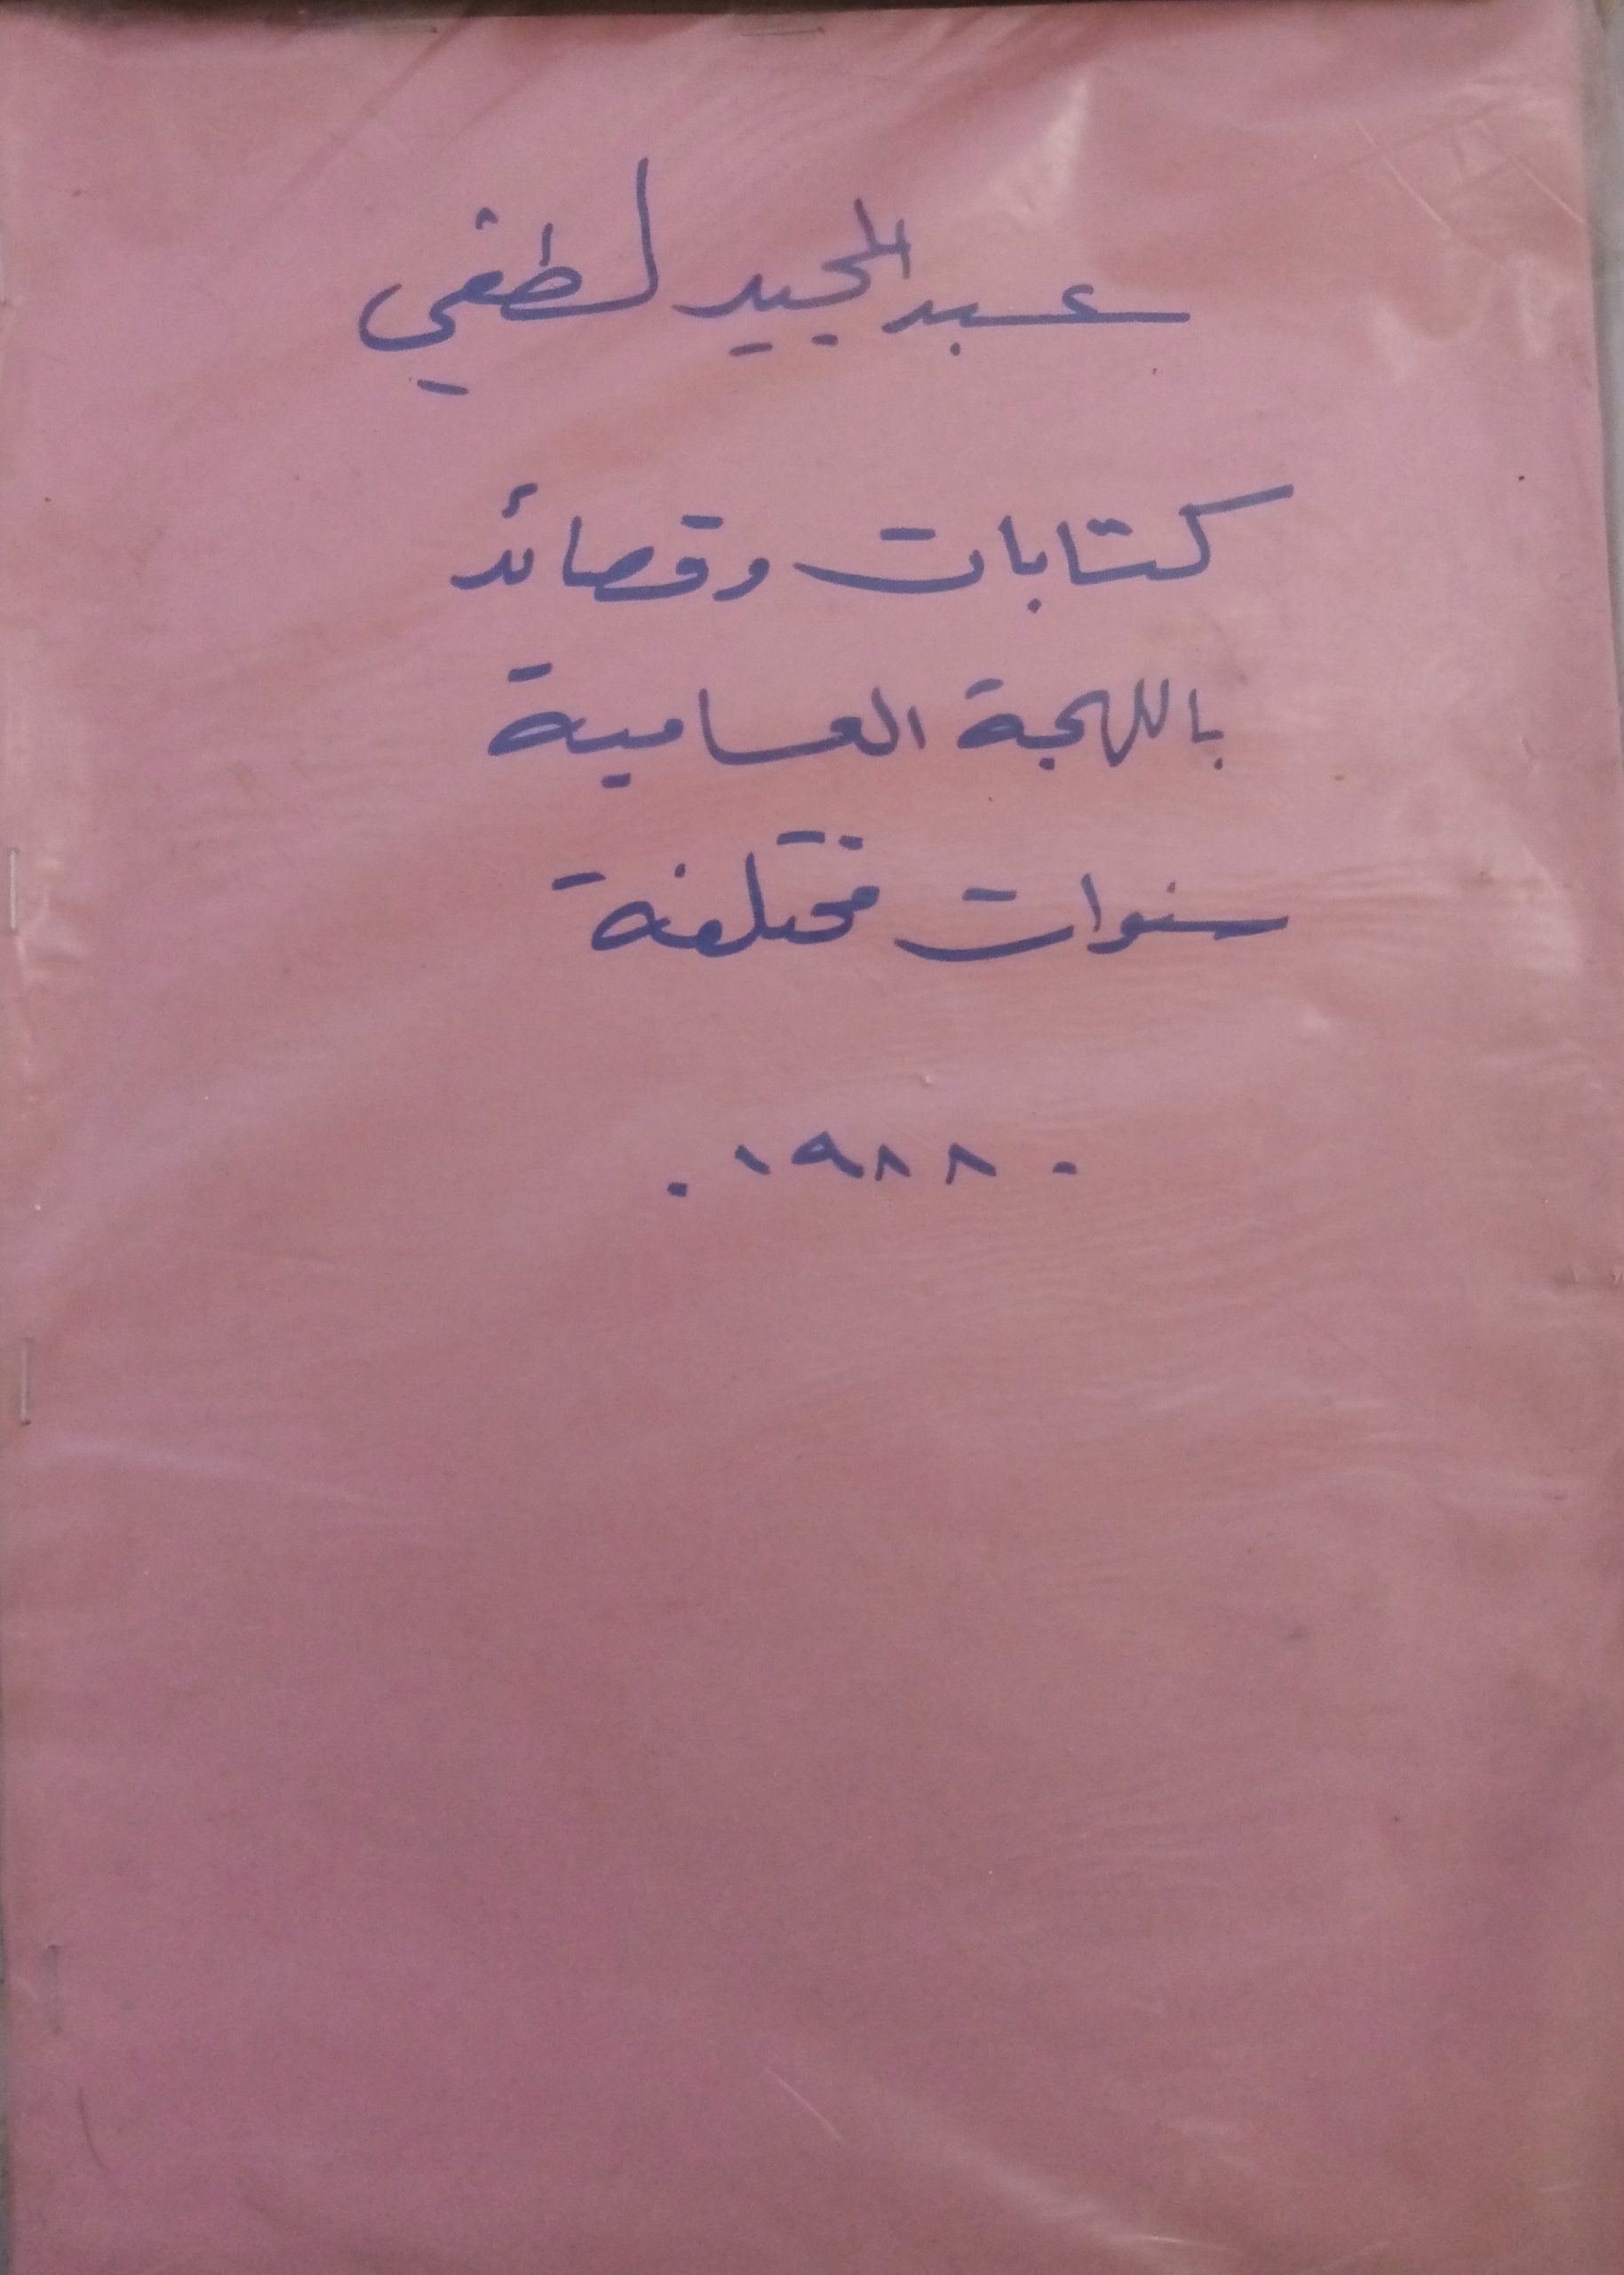 عبد المجيد لطفي
كتابات وقصائد
باللهجة العامية
سنوات مختلفة
- ١٩٨٨ .